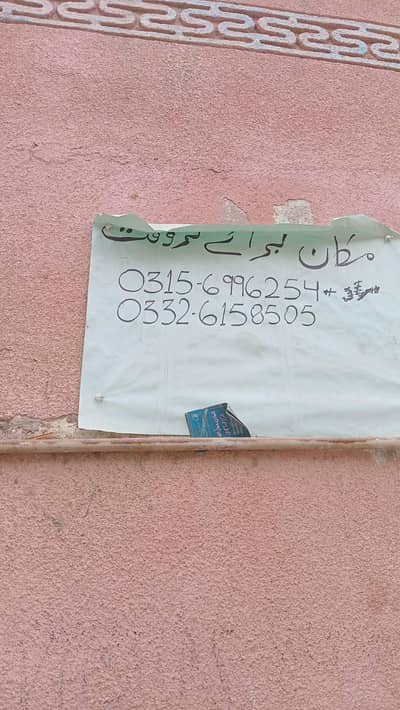 مکان برائے فروخت
0315-6996254+
0332-6158505